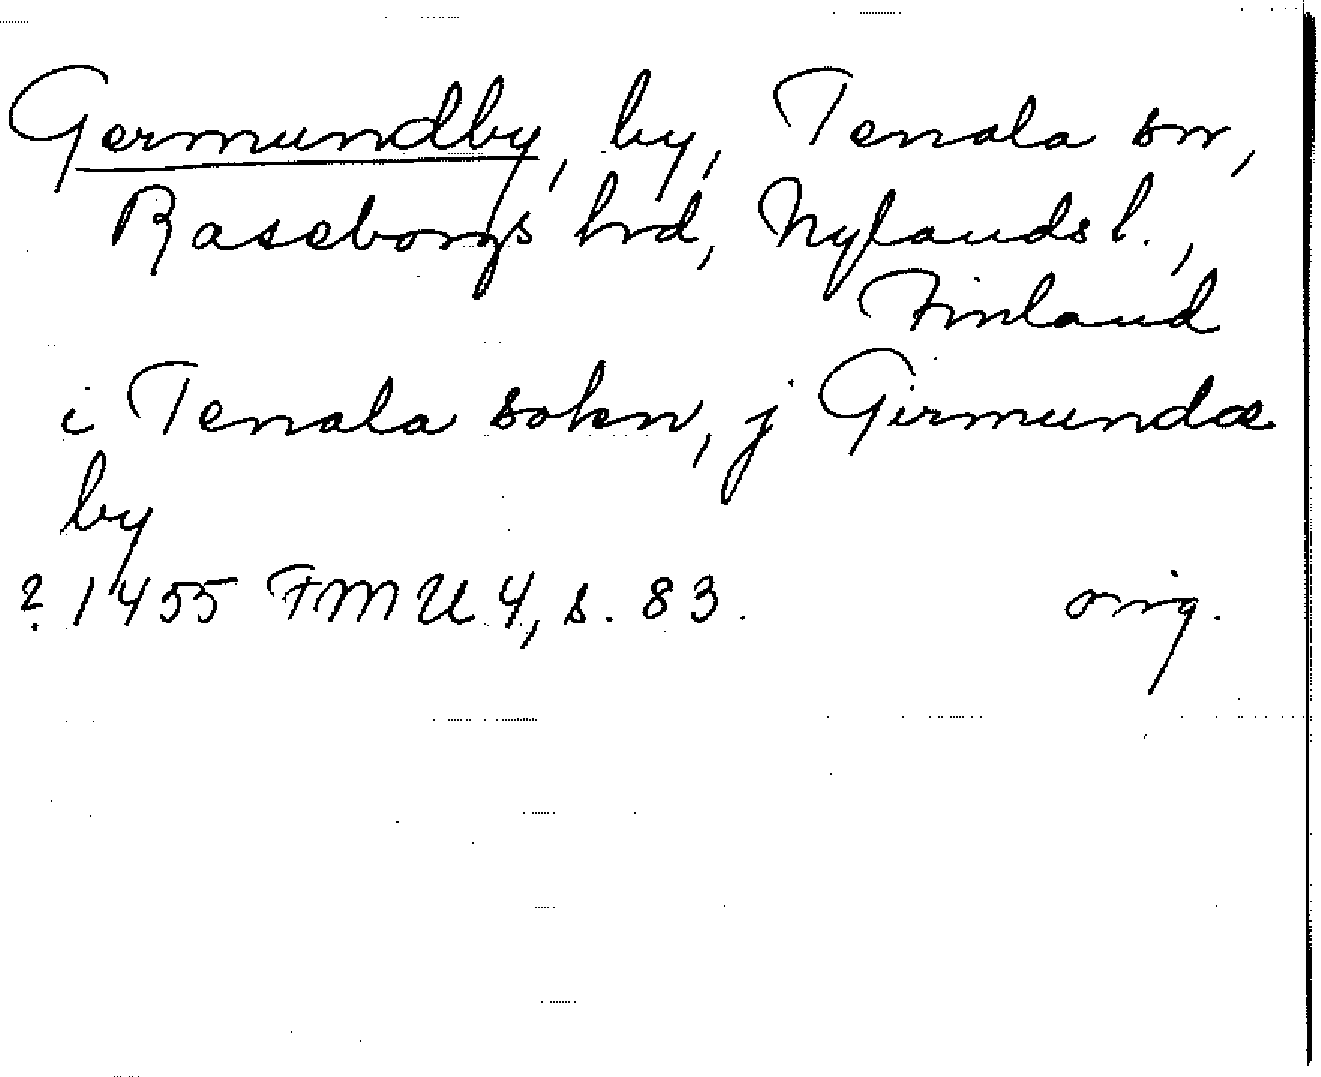 Germundby, by, Tenala sn,
Raseborgs hrd, Nylands l.,
Finland
i Tenala sokn, j Girmundæ
by
? 1455 FMU 4, s. 83. orig.